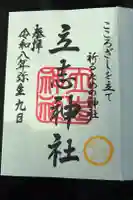 こころざしを立て
祈るための神社
立志神社
奉拝
令和八年弥生九日